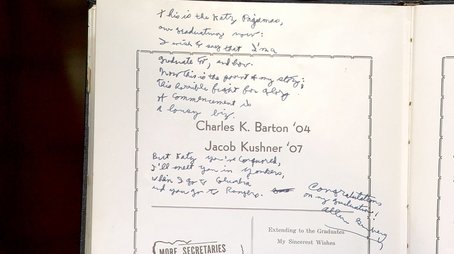 This is the Katy Pajamas,
our graduating now:
I wish to say that I'm a
graduate
Now this is the point of my story;
this horrible fight for glory
A Commencement is
a lousy biz.
Charles K. Barton '04
Jacob Kushner '07
But Katy you've Conquered,
I'll meet you in Yonkers,
when I go to Columbia
and you go to Rutgers.
Congratulations
on my graduation!
Allen Ginsberg
Extending to the Graduates
My Sincerest Wishes
MORE SECRETARIES